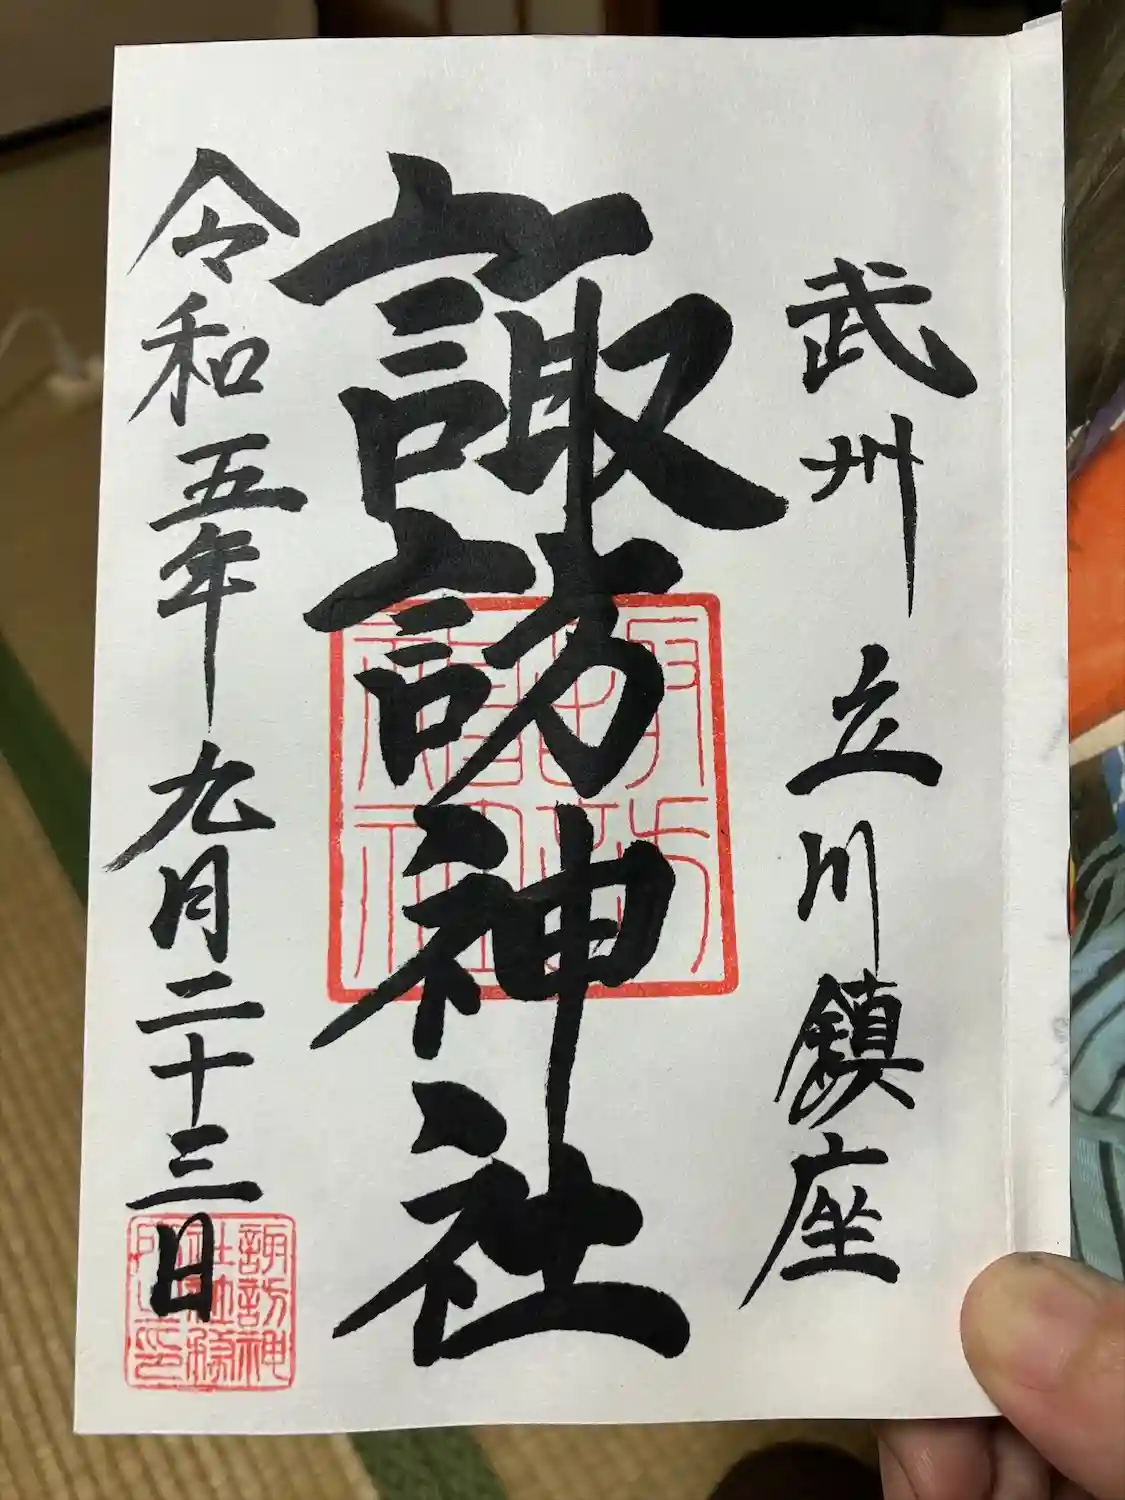 武州 立川鎮座
諏訪神社
令和五年九月二十三日
諏訪神
社社務
所之印